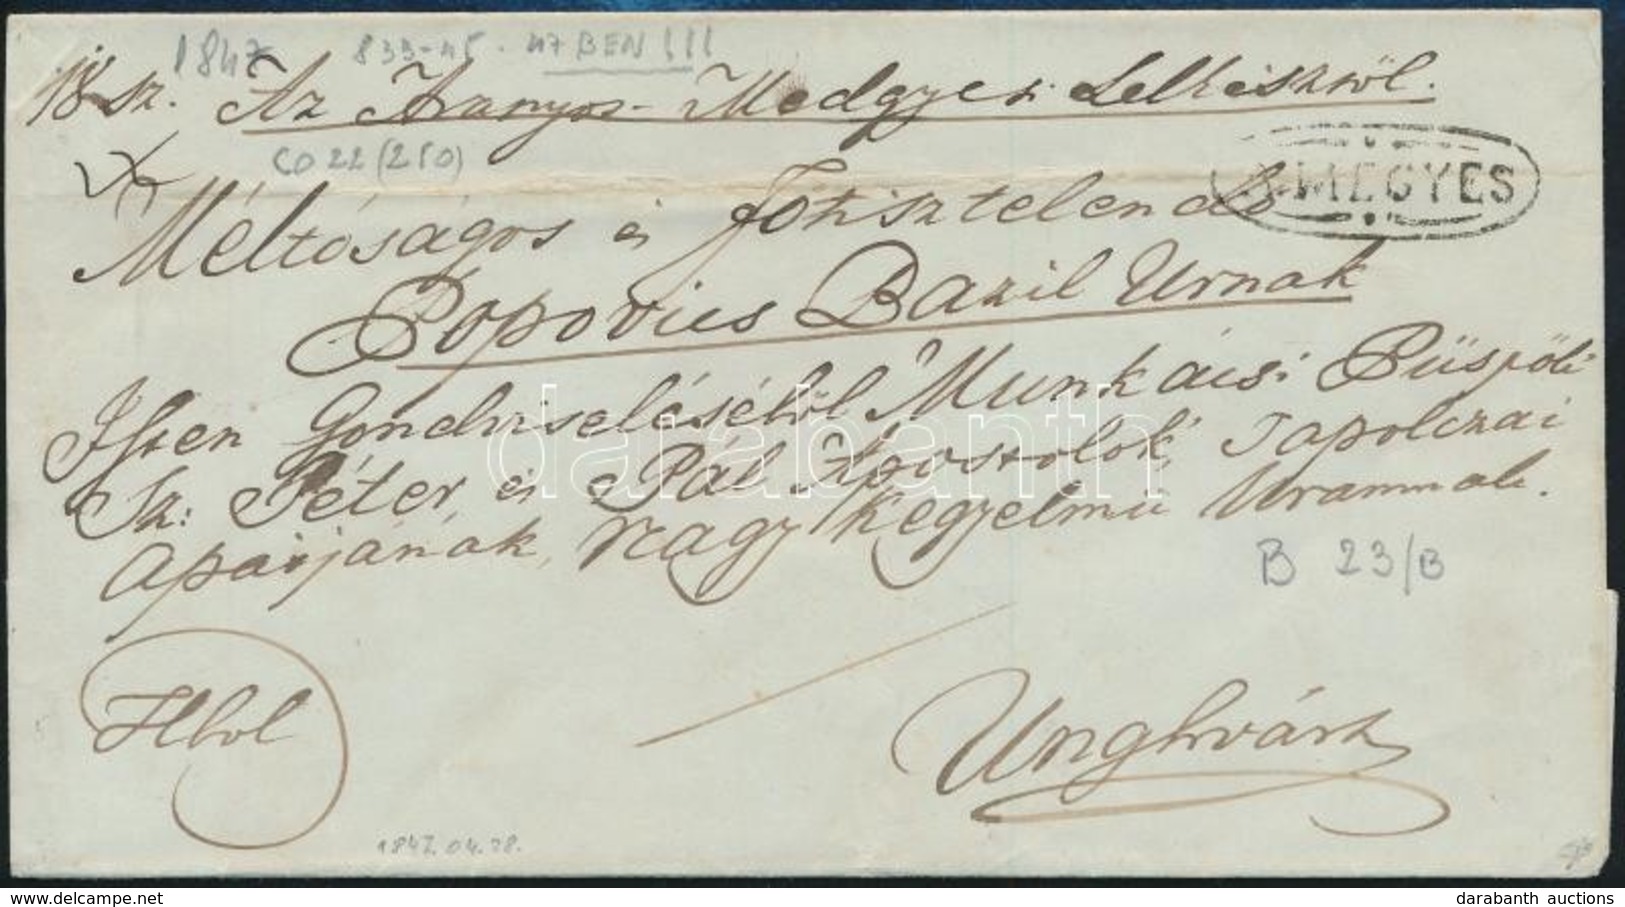 1847 833-45. 47 BEN !!!
18 sz. Az Aranyos-Medgyesi Lelkésztöl.
CO 22 (250)
A-MEGYES
Méltóságos és Fötisztelendö
Popovics Bazil Urnak
Isten Gondviseléséböl Munkácsi Püspök
Sz: Péter, és Pál Apostolok, Tapolczai
apátjának, Nagy Kegyelmü Uramnak.
B 23/B
Unghvárt
1847.04.28.
darabanth
darabanth auctions